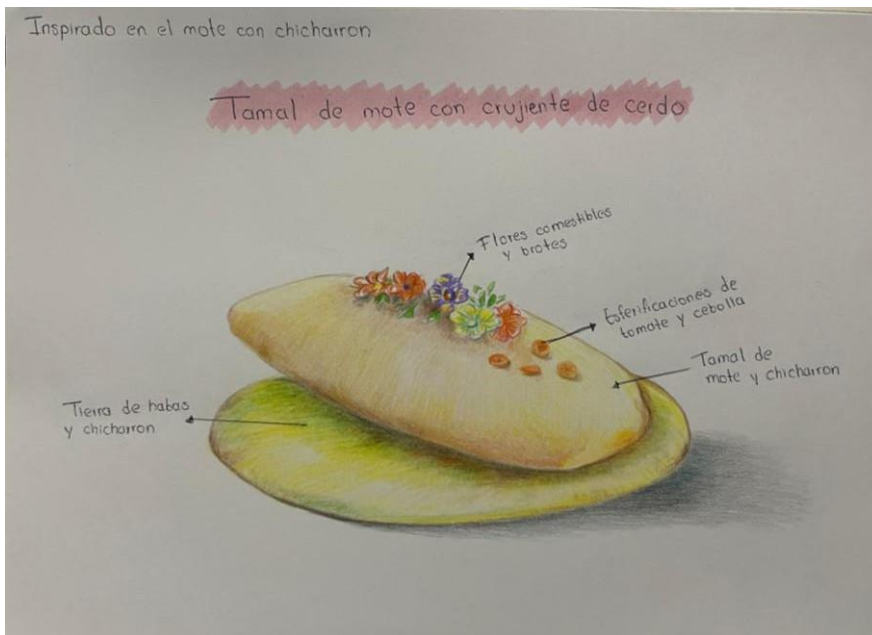 Inspirado en el mote con chicharron
Tamal de mote con crujiente de cerdo
Flores comestibles
y brotes
Esferificaciones de
tomate y cebolla
Tamal de
mote y chicharron
Tierra de habas
y chicharron